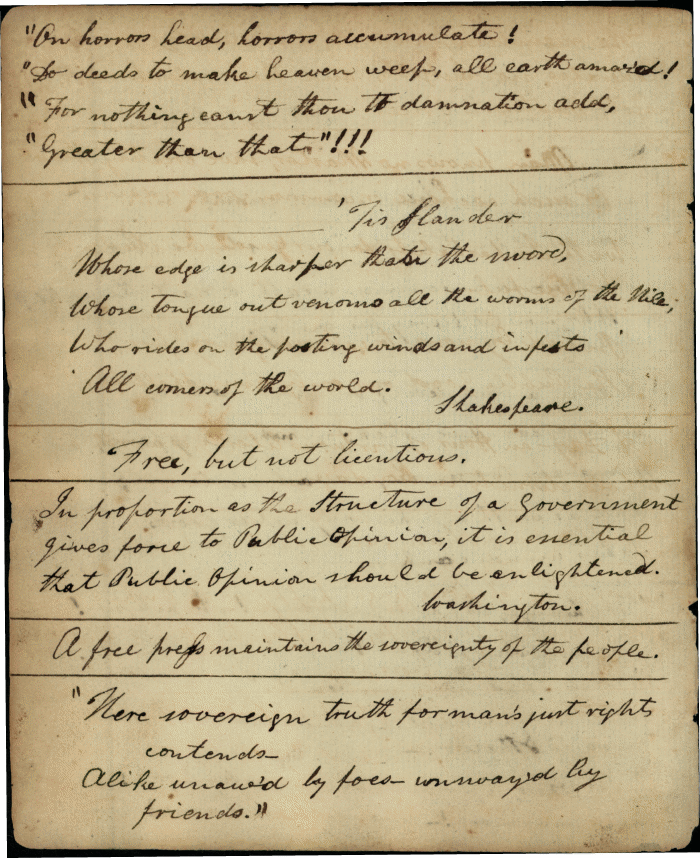 "On horrors head, horrors accumulate!
"Do deeds to make heaven weep, all earth amaz'd!
"For nothing canst thou to damnation add,
"Greater than that"!!!
'Tis slander
Whose edge is sharper than the sword,
Whose tongue out venoms all the worms of the Nile,
Who rides on the posting winds and infests
All corners of the world.
Shakespeare.
Free, but not licentious.
In proportion as the Structure of a Government
gives force to Public Opinion, it is essential
that Public Opinion should be enlightened.
Washington.
A free press maintains the sovereignty of the people.
"Here sovereign truth for man's just rights
contends—
Alike unawe'd by foes— unsway'd by
friends."